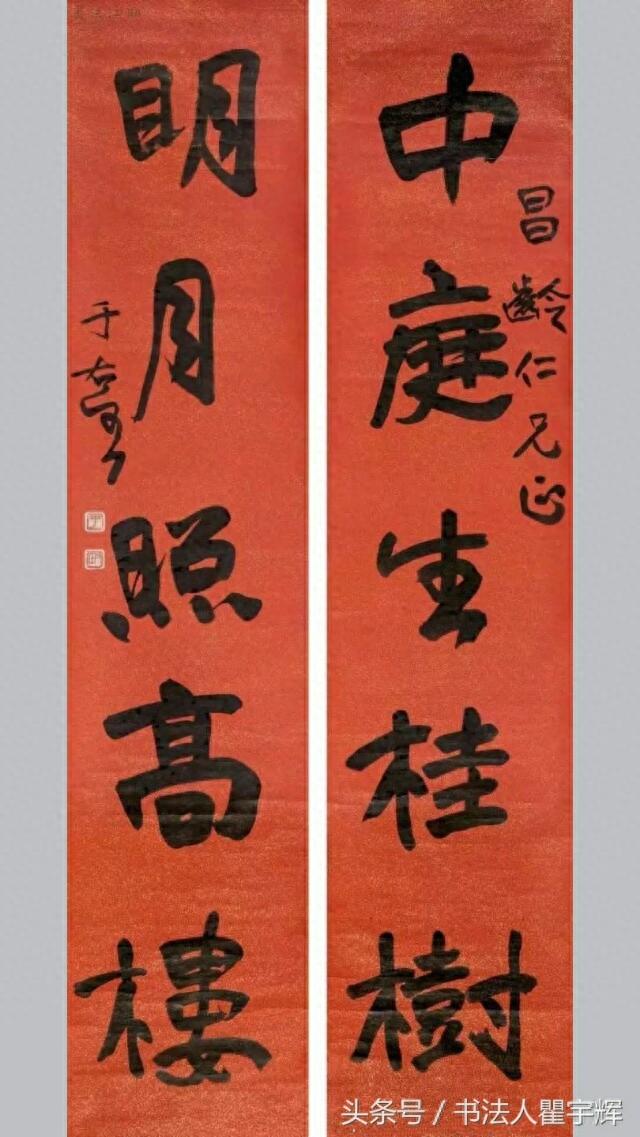 中庭生桂樹
昌齡仁兄正
明月照高樓
于右任
头条号 / 书法人瞿宇辉